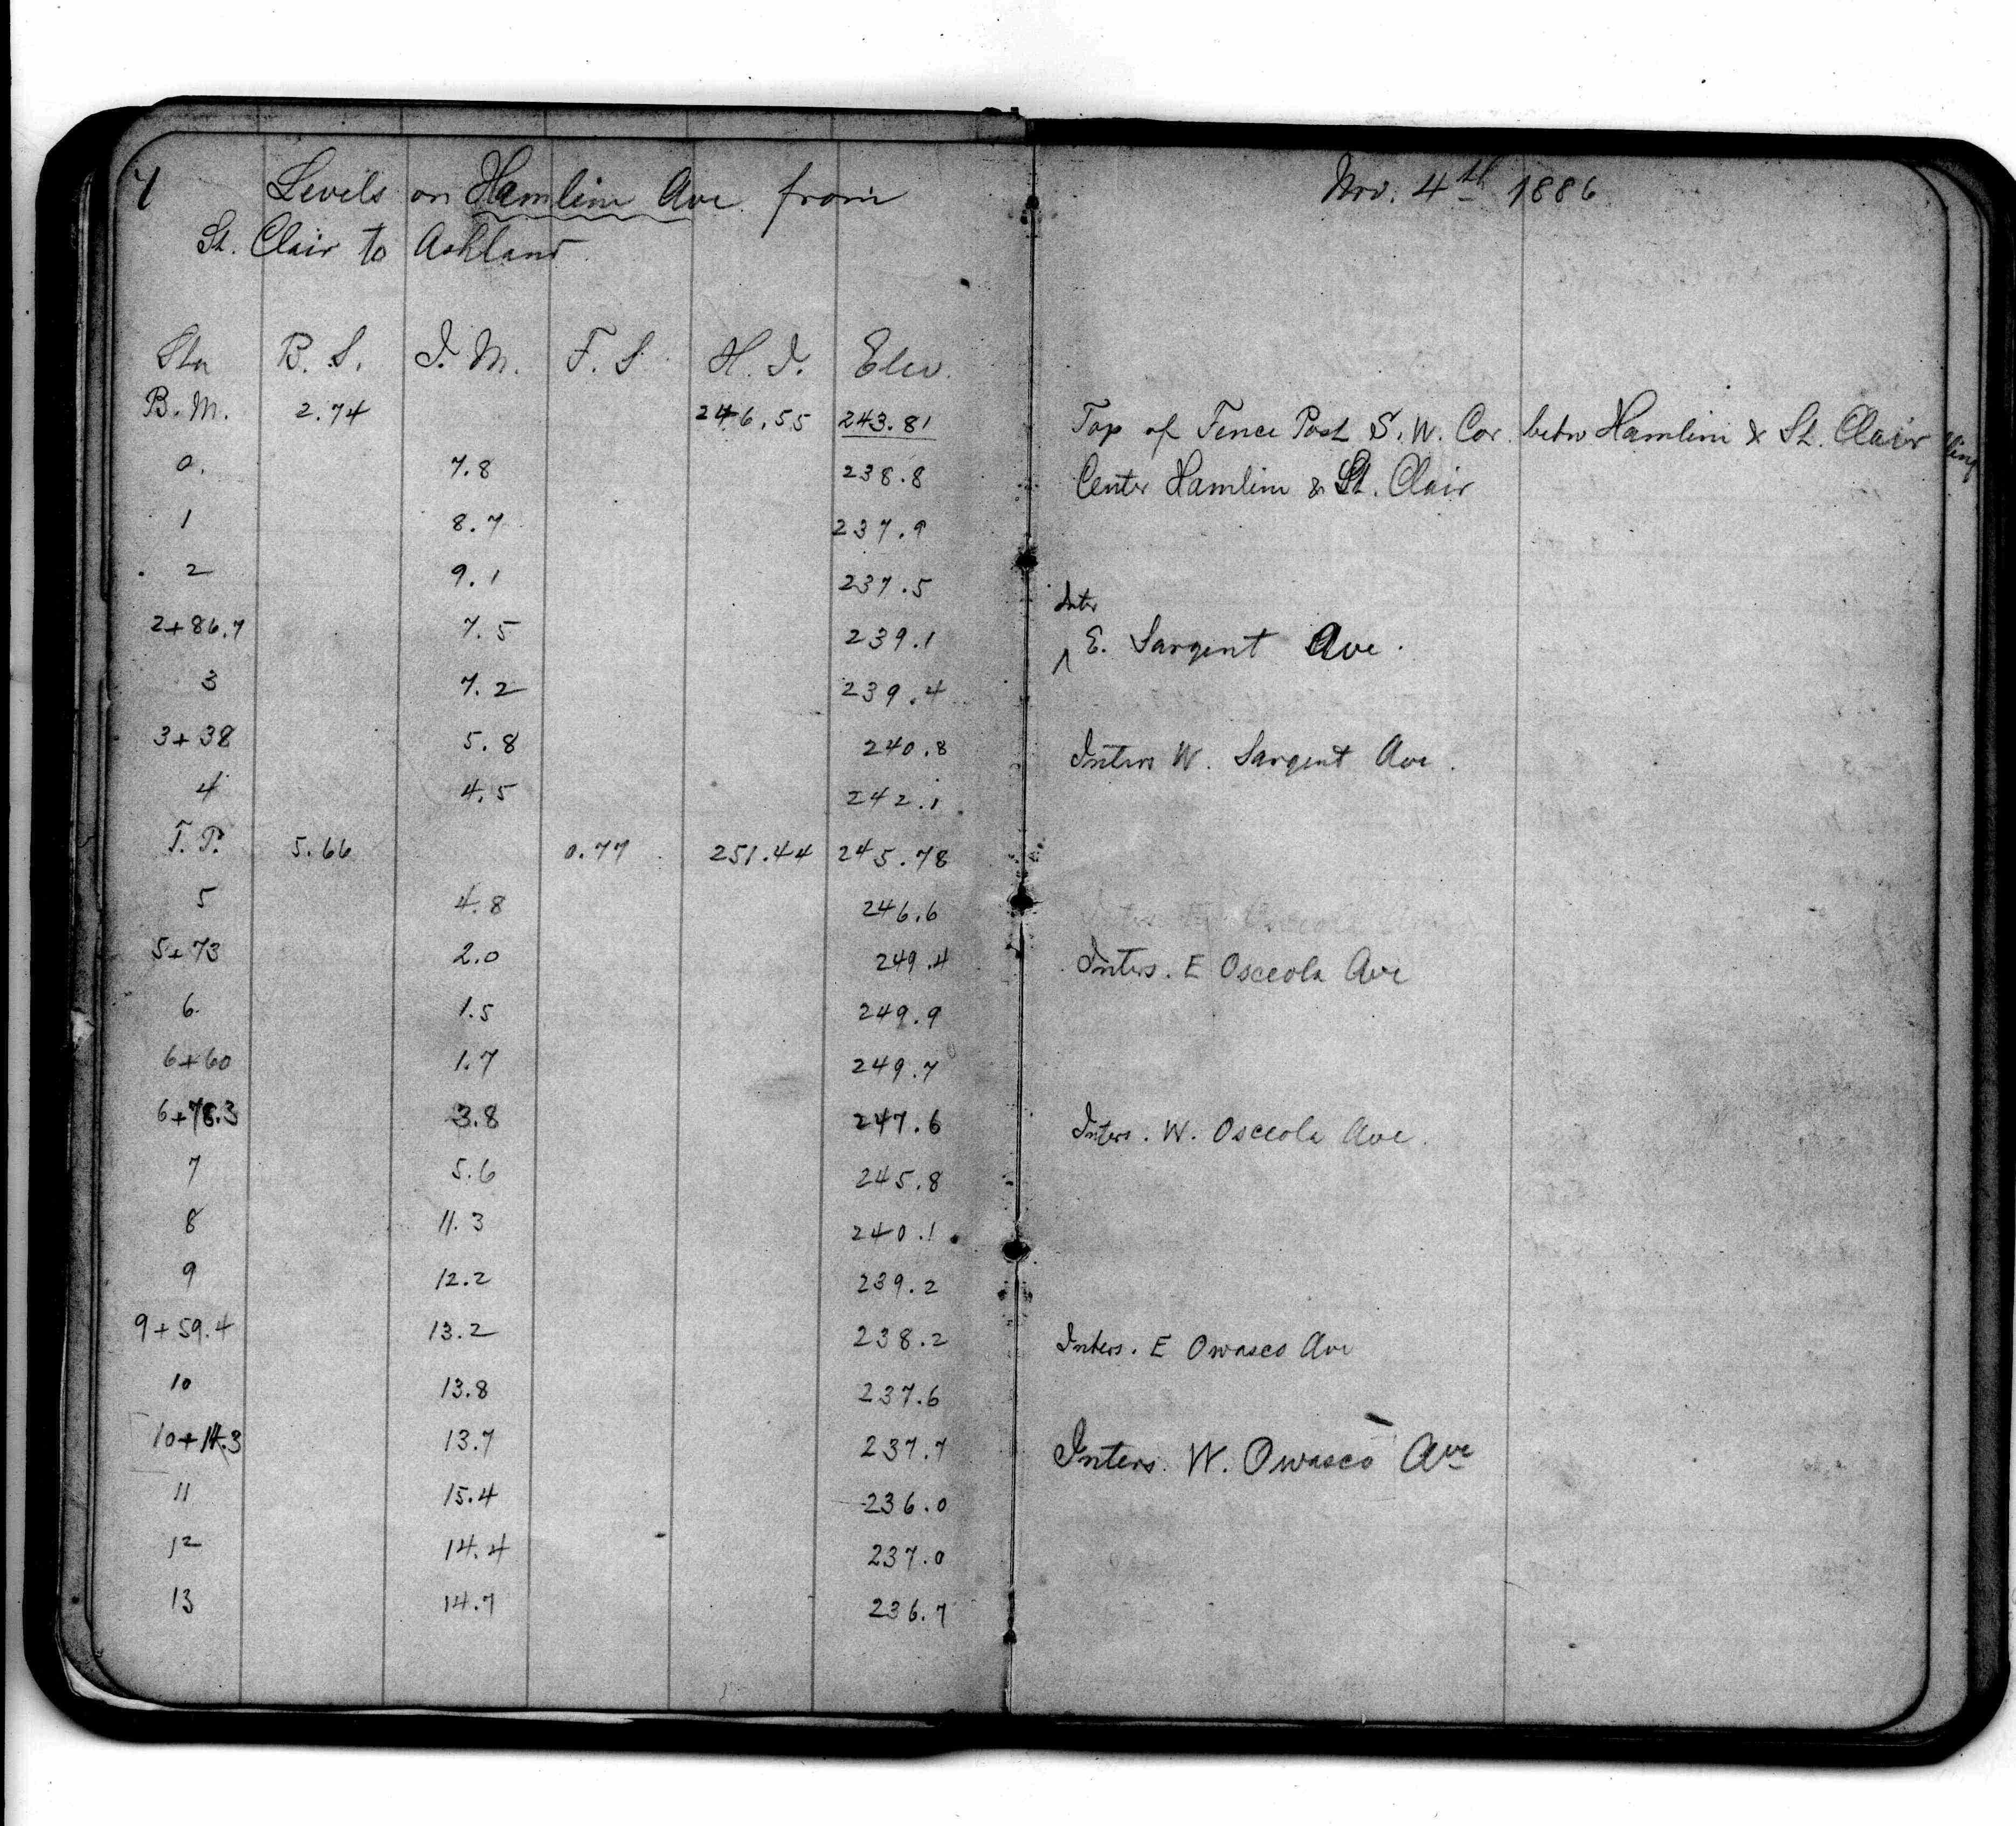 7 Levels on Hamline Ave from Nov. 4th 1886
St. Clair to Ashland
Sta B. S. I. M. F. S. H. I. Elev.
B. M. 2.74 246.55 243.81 Top of Fence Post S. W. Cor. betw Hamline & St. Clair
0. 7.8 238.8 Center Hamline & St. Clair
1 8.7 237.9
2 9.1 237.5
2+86.7 7.5 239.1 Inter E. Sargent Ave.
3 7.2 239.4
3+38 5.8 240.8 Inters W. Sargent Ave.
4 4.5 242.1
T. P. 5.66 0.77 251.44 245.78
5 4.8 246.6
5+73 2.0 249.4 Inters. E Osceola Ave
6 1.5 249.9
6+60 1.7 249.7
6+78.3 3.8 247.6 Inters. W. Osceola Ave.
7 5.6 245.8
8 11.3 240.1
9 12.2 239.2
9+59.4 13.2 238.2 Inters. E Owasco Ave
10 13.8 237.6
10+14.3 13.7 237.7 Inters. W. Owasco Ave
11 15.4 236.0
12 14.4 237.0
13 14.7 236.7